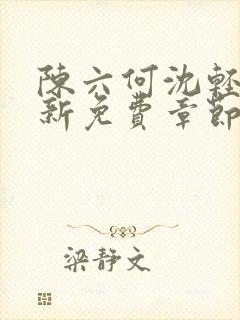 陳六何沈輕
新免費章節
梁靜文